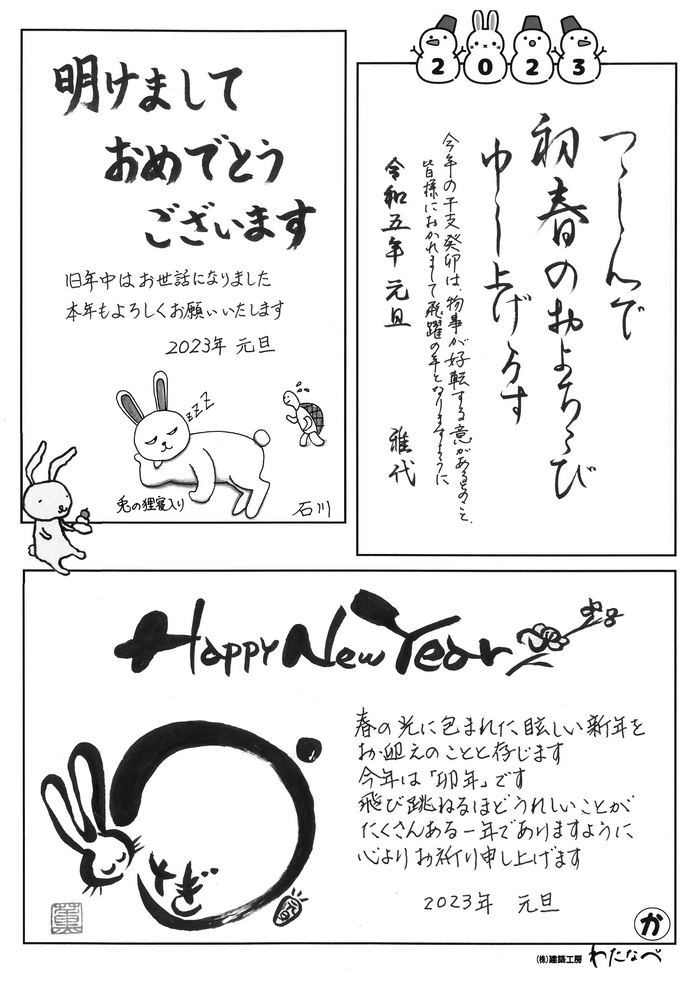 明けまして
おめでとう
ございます
旧年中はお世話になりました
本年もよろしくお願いいたします
2023年 元旦
zzz
兎の狸寝入り
石川
2023
つつしんで
初春のおよろこび
申し上げます
今年の干支癸卯は、物事が好転する意があるとのこと、
皆様におかれまして飛躍の年となりますように
令和五年 元旦
雅代
Happy New Year
春の光に包まれた、眩しい新年を
お迎えのことと存じます
今年は「卯年」です
飛び跳ねるほどうれしいことが
たくさんある一年でありますように
心よりお祈り申し上げます
2023年 元旦
うさぎ
か
(株)建築工房 わたなべ